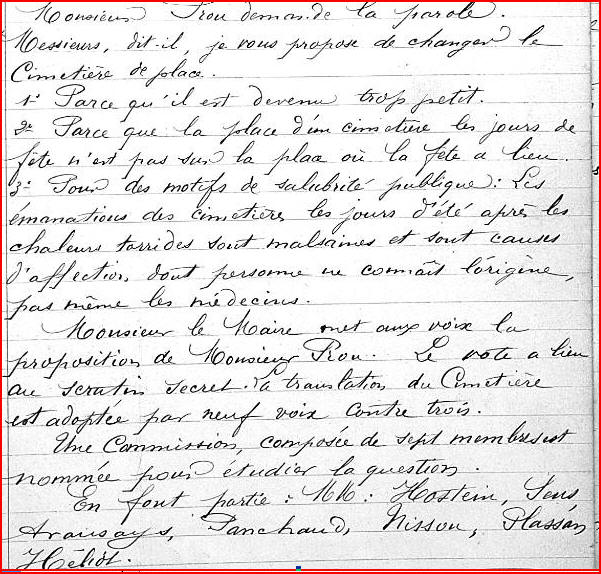 Monsieur Prou demande la parole.
Messieurs, dit-il, je vous propose de changer le
Cimetière de place.
1º Parce qu'il est devenu trop petit.
2º Parce que la place d'un cimetière les jours de
fête n'est pas sur la place où la fête a lieu.
3º Pour des motifs de salubrité publique: Les
émanations des cimetières les jours d'été après les
chaleurs torrides sont malsaines et sont causes
d'affection, dont personne ne connaît l'origine,
pas même les médecins.
Monsieur le Maire met aux voix la
proposition de Monsieur Prou. Le vote a lieu
au scrutin secret. la translation du Cimetière
est adoptée par neuf voix contre trois.
Une Commission, composée de sept membres est
nommée pour étudier la question.
En font partie: MM: Hostein, Sens
Aransays, Panchaud, Nisson, Plassan
Héliot.